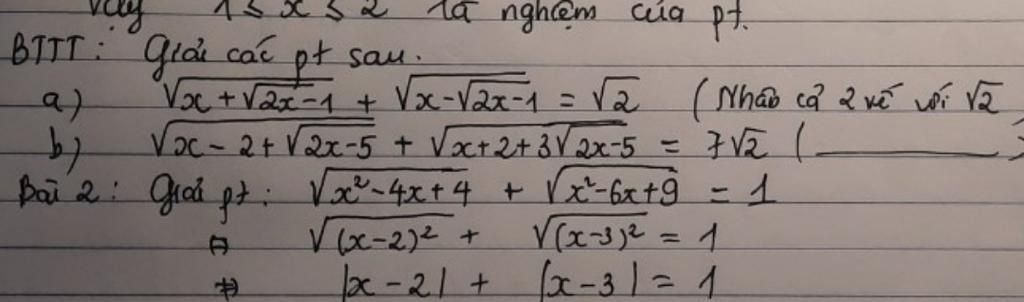 Vậy 1 ≤ x ≤ 2 là nghiệm của pt.
BTTT: Giải các pt sau.
a) √(x + √(2x-1)) + √(x - √(2x-1)) = √2 (Nhân cả 2 vế với √2
b) √(x - 2 + √(2x-5)) + √(x + 2 + 3√(2x-5)) = 7√2 (________)
Bài 2: Giải pt: √(x² - 4x + 4) + √(x² - 6x + 9) = 1
⇔ √((x-2)²) + √((x-3)²) = 1
⇔ |x - 2| + |x - 3| = 1